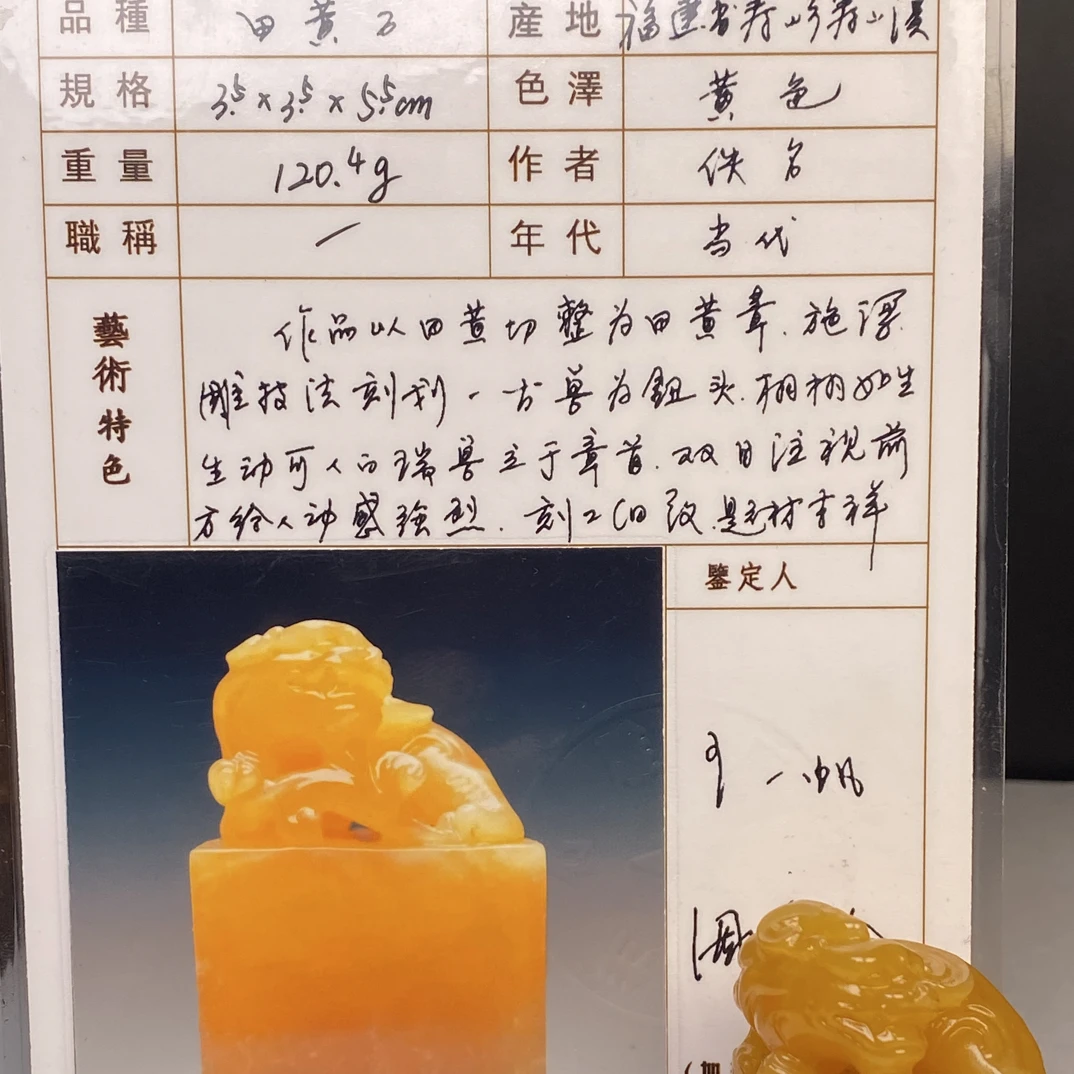 品種 田黄石 産地 福建省寿山乡寿山溪
規格 3.5×3.5×5.5cm 色澤 黄色
重量 120.4g 作者 佚名
職稱 / 年代 当代
藝術特色
作品以田黄切整为田黄章.施浮
雕技法刻划一古兽为钮头.栩栩如生
生动可人的瑞兽立于章首.双目注视前
方给人动感强烈.刻工细致.题材吉祥
鑒定人